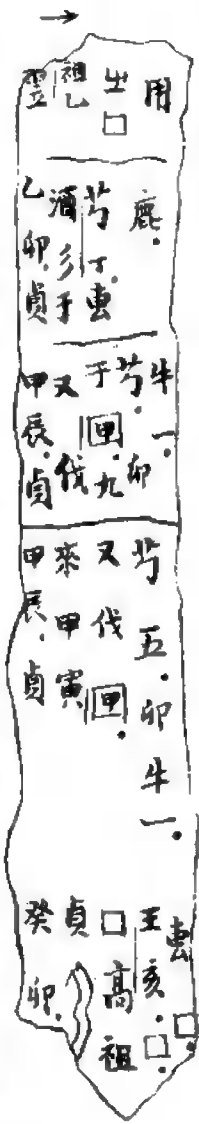 翌
祖乙
㞢□
用
乙卯.貞
酒彡于
芍丁.叀
鹿.
甲辰.貞
又伐
于甲九
芍.卯
牛一.
甲辰.貞
來甲寅
又伐甲.
芍五.卯牛一.
癸卯.
貞
□高祖
王亥.□
叀□